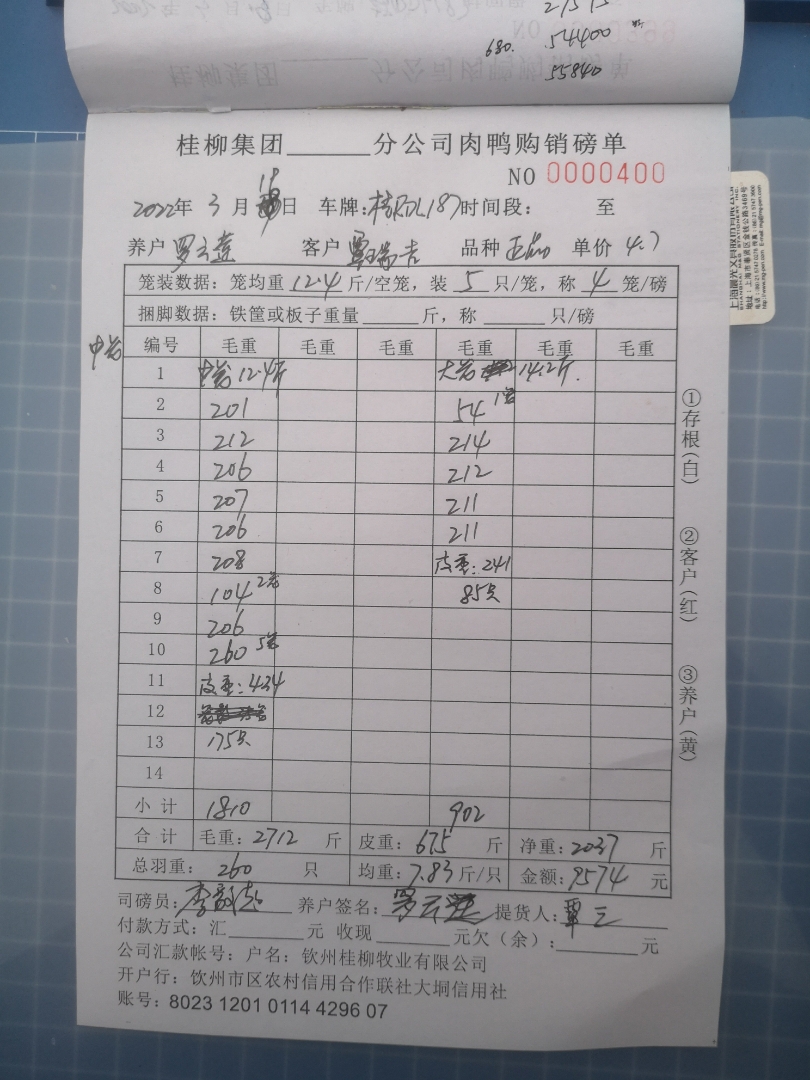 54400
680.
55840
桂柳集团______分公司肉鸭购销磅单
NO 0000400
2022年 3 月 19 日 车牌: 时间段: 至
养户 罗云莲 客户 覃瑞吉 品种 正品 单价 4.7
笼装数据: 笼均重 12.4 斤/空笼, 装 5 只/笼, 称 4 笼/磅
捆脚数据: 铁筐或板子重量______斤, 称______只/磅
中笼
编号 毛重 毛重 毛重 毛重 毛重 毛重
1 中笼 12.4斤 大笼 14.2斤.
2 201 54 1笼
3 212 214
4 206 212
5 207 211
6 206 211
7 208 皮重: 241
8 104 2笼 85只
9 206
10 260 5笼
11 皮重: 434
12
13 175只
14
小计 1810 902
合计 毛重: 2712 斤 皮重: 675 斤 净重: 2037 斤
总羽重: 260 只 均重: 7.83 斤/只 金额: 9574 元
司磅员: 养户签名: 罗云莲 提货人: 覃三
付款方式: 汇______元 收现______元欠(余):______元
公司汇款帐号: 户名: 钦州桂柳牧业有限公司
开户行: 饮州市区农村信用合作联社大垌信用社
账号: 8023 1201 0114 4296 07
①存根(白)
②客户(红)
③养户(黄)